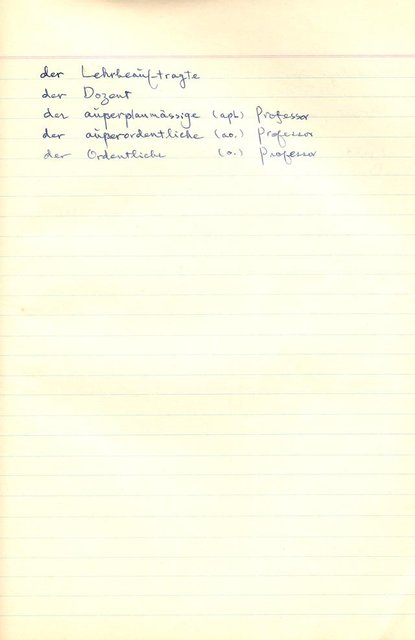 der Lehrbeauftragte
der Dozent
der außerplanmässige (apl.) Professor
der außerordentliche (ao.) Professor
der Ordentliche (o.) Professor